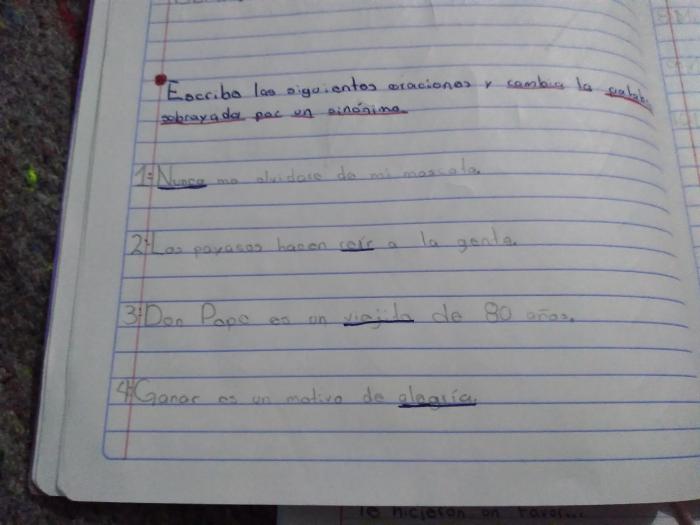 Escribe las siguientes oraciones y cambia la palab
sobrayada por un sinónimo
1: Nunca me olvidare de mi mascota.
2: Los payasos hacen reír a la gente.
3: Don Pape es un viejito de 80 años.
4: Ganar es un motivo de alegría.
le hicieron un favor...